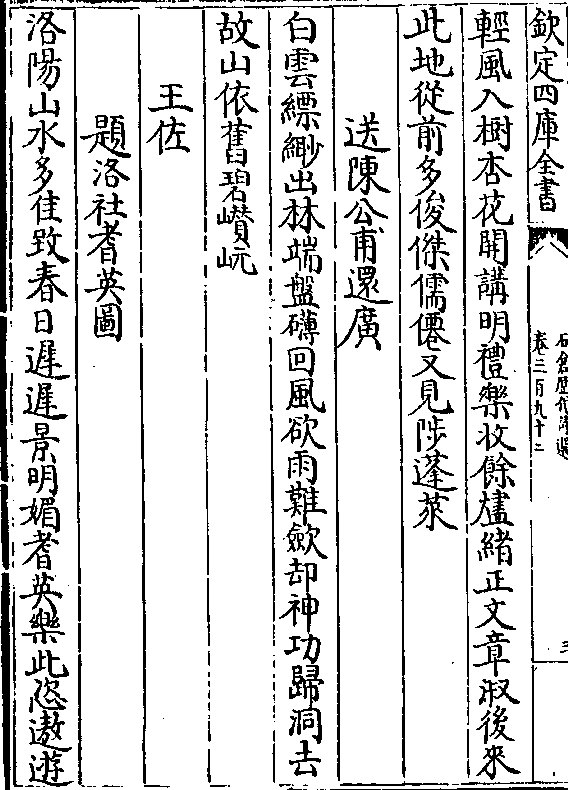 欽定四庫全書
卷三百九十二
三
輕風入樹杏花開講明禮樂收餘燼緒正文章淑後來
此地從前多俊傑儒僊又見陟蓬萊
送陳公甫還廣
白雲縹緲出林端盤礴回風欲雨難歛却神功歸洞去
故山依舊碧巑岏
王佐
題洛社耆英圖
洛陽山水多佳致春日遲遲景明媚耆英樂此恣遨遊